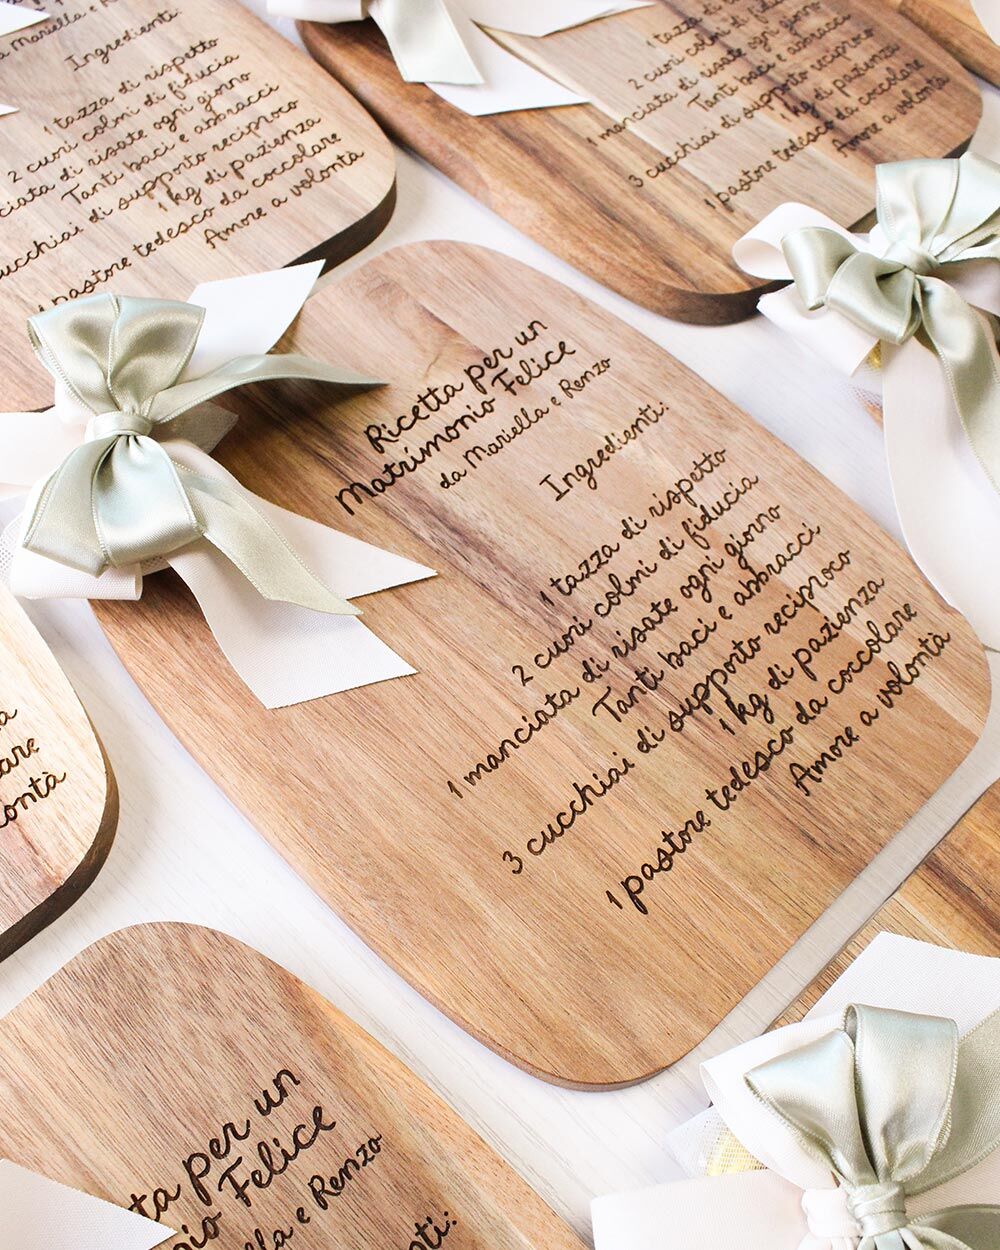 a Mariella e Renzo
Ingredienti:
1 tazza di rispetto
2 cuori colmi di fiducia
ciata di risate ogni giorno
Tanti baci e abbracci
cucchiai di supporto reciproco
1 kg di pazienza
1 pastore tedesco da coccolare
Amore a volontà
1 tazza di rispetto
2 cuori colmi di
1 manciata di risate ogni
Tanti baci e abbracci
3 cucchiai di supporto reciproco
1 kg di pazienza
1 pastore tedesco da coccolare
Amore a volontà
Ricetta per un
Matrimonio Felice
da Mariella e Renzo
Ingredienti:
1 tazza di rispetto
2 cuori colmi di fiducia
1 manciata di risate ogni giorno
Tanti baci e abbracci
3 cucchiai di supporto reciproco
1 kg di pazienza
1 pastore tedesco da coccolare
Amore a volontà
a
are
lontà
tta per un
nio Felice
ella e Renzo
nti: